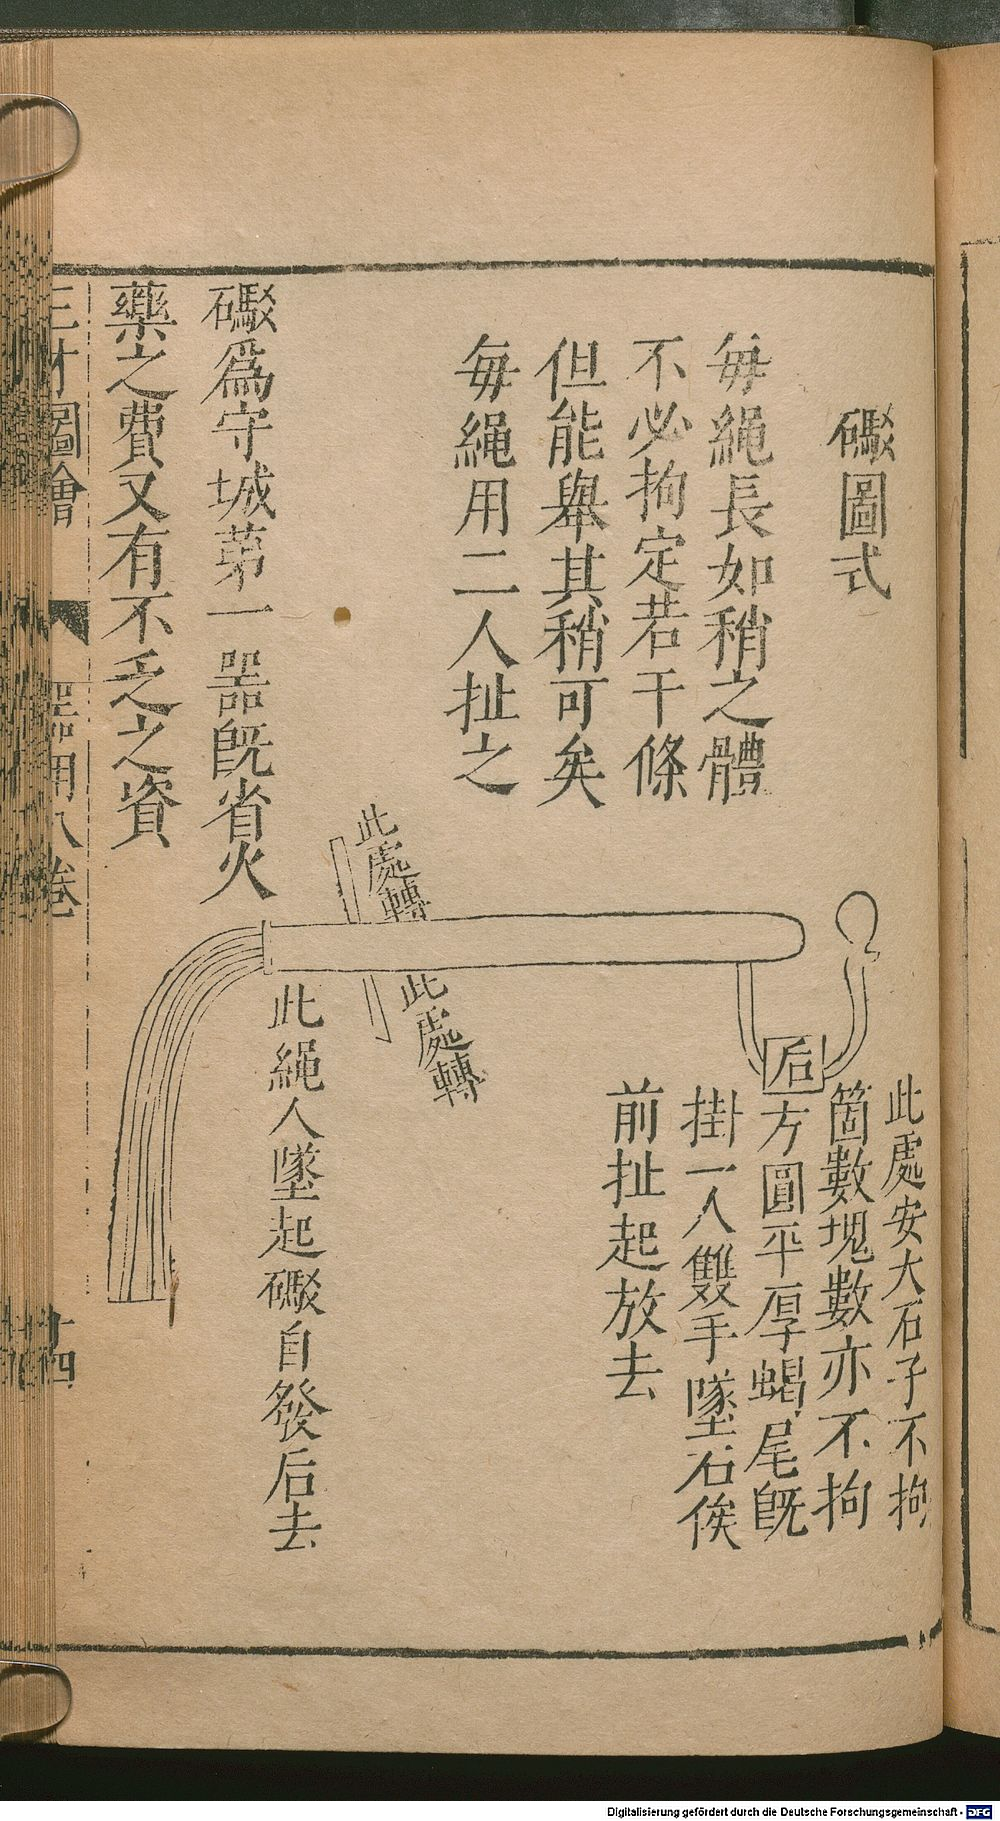 礟圖式
每繩長如稍之體
不必拘定若干條
但能舉其稍可矣
每繩用二人扯之
此處安大石子不拘
箇數塊數亦不拘
后方圓平厚蝎尾既
掛一人雙手墜石俟
前扯起放去
此處轉
此處轉
此繩人墜起礟自發后去
礟為守城第一器既省火
藥之費又有不乏之資
三才圖會
器用八卷
十四
Digitalisierung gefördert durch die Deutsche Forschungsgemeinschaft - DFG